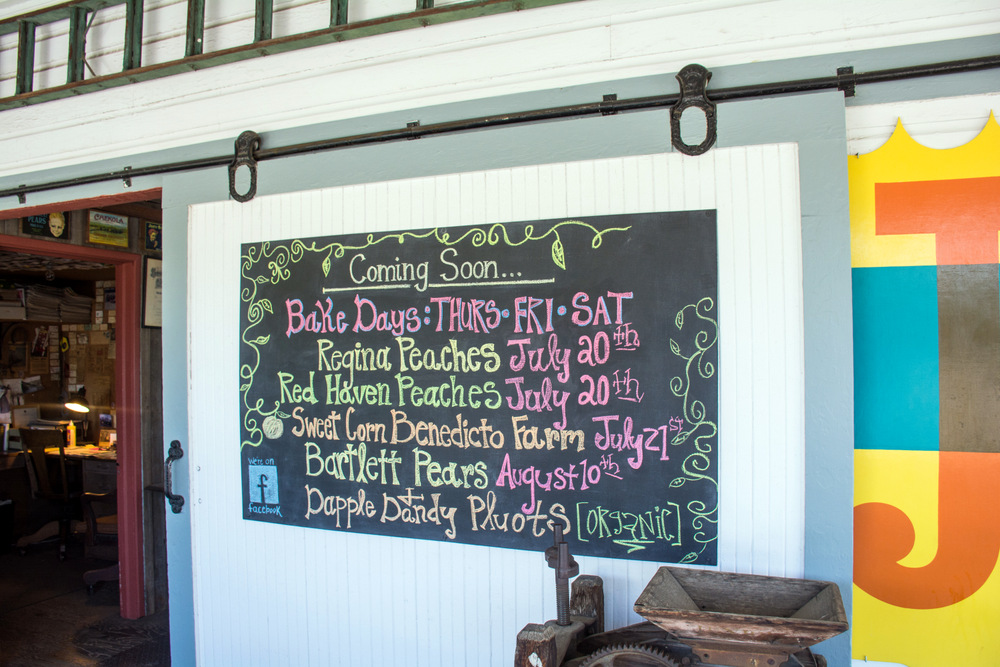 Coming Soon...
Bake Days: THURS• FRI • SAT
Regina Peaches July 20th
Red Haven Peaches July 20th
Sweet Corn Benedicto Farm July 21st
Bartlett Pears August 10th
Dapple Dandy Pluots [ORGANIC]
We're on
f
facebook
J